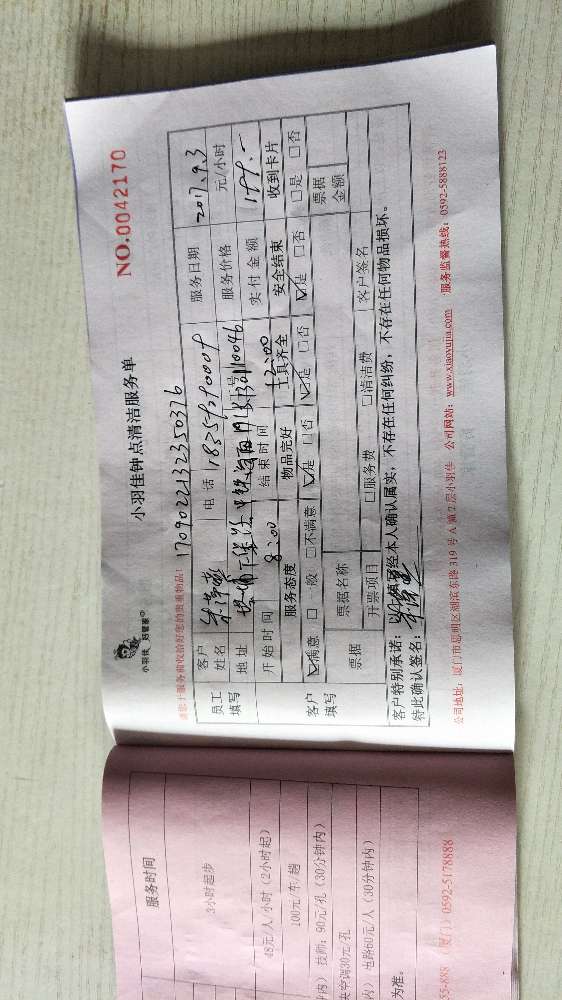 小羽佳 好管家
小羽佳钟点清洁服务单
NO.0042170
请您于服务前收拾好您的贵重物品!
17090221323503 76
员工填写
客户姓名
电话
服务日期 2017.9.3
地址
服务价格 元/小时
开始时间 8:00
结束时间 12:00
实付金额 199.-
客户填写
服务态度 物品完好 工具齐全 安全结束 收到卡片
☑满意 □一般 □不满意 ☑是 □否 ☑是 □否 ☑是 □否 □是 □否
票据
票据名称
票据金额
开票项目 □服务费 □清洁费 客户签名
客户特别承诺:以上填写经本人确认属实,不存在任何纠纷,不存在任何物品损坏。
特此确认签名:
公司地址:厦门市思明区湖滨东路319号A第2层小羽佳 公司网站:www.xiaoyujia.com 服务监督热线:0592-5888123
服务时间
3小时起步
48元/人/小时(2小时起)
100元/车/趟
内)技师:90元/孔(30分钟内)
央空调30元/孔
内)电路60元/人(30分钟内)
为准。
55-888(厦门)0592-5178888